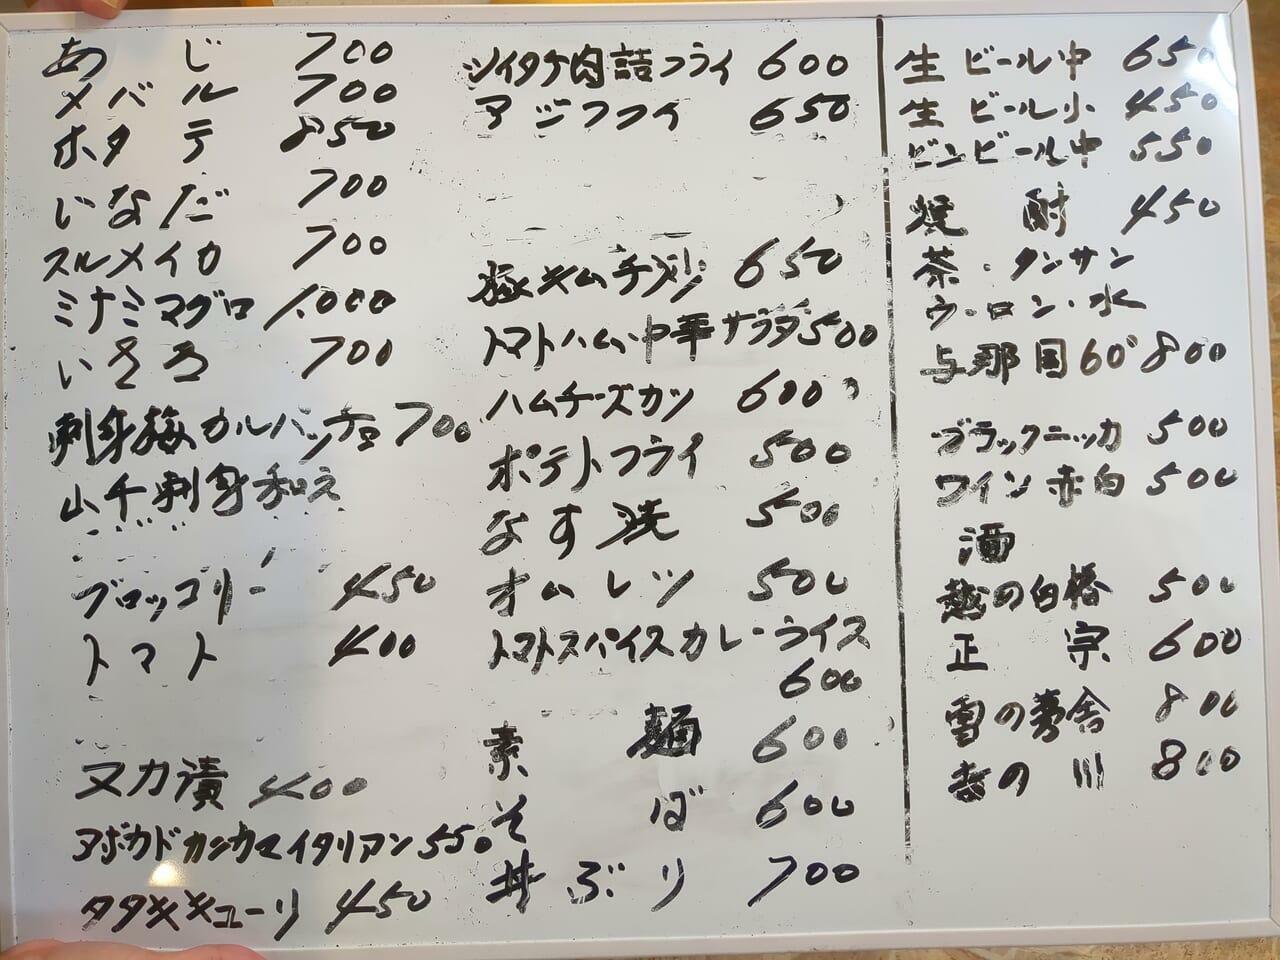 あじ 700
メバル 700
ホタテ 850
いなだ 700
スルメイカ 700
ミナミマグロ 1,000
いさき 700
刺身梅カルパッチョ 700
山チ刺身和え
ブロッコリー 450
トマト 400
ヌカ漬 400
アボカドカンカマイタリアン 550
タタキキューリ 450
シイタケ肉詰フライ 600
アジフライ 650
豚キムチ炒 650
トマトハム中華サラダ 500
ハムチーズカツ 600
ポテトフライ 500
なす 500
オムレツ 500
トマトスパイスカレーライス
600
素麺 600
そば 600
丼ぶり 700
生ビール中 650
生ビール小 450
ビンビール中 550
焼酎 450
茶・タンサン
ウーロン・水
与那国60° 800
ブラックニッカ 500
ワイン赤白 500
酒
越の白椿 500
正宗 600
雪の茅舎 800
吉の川 800